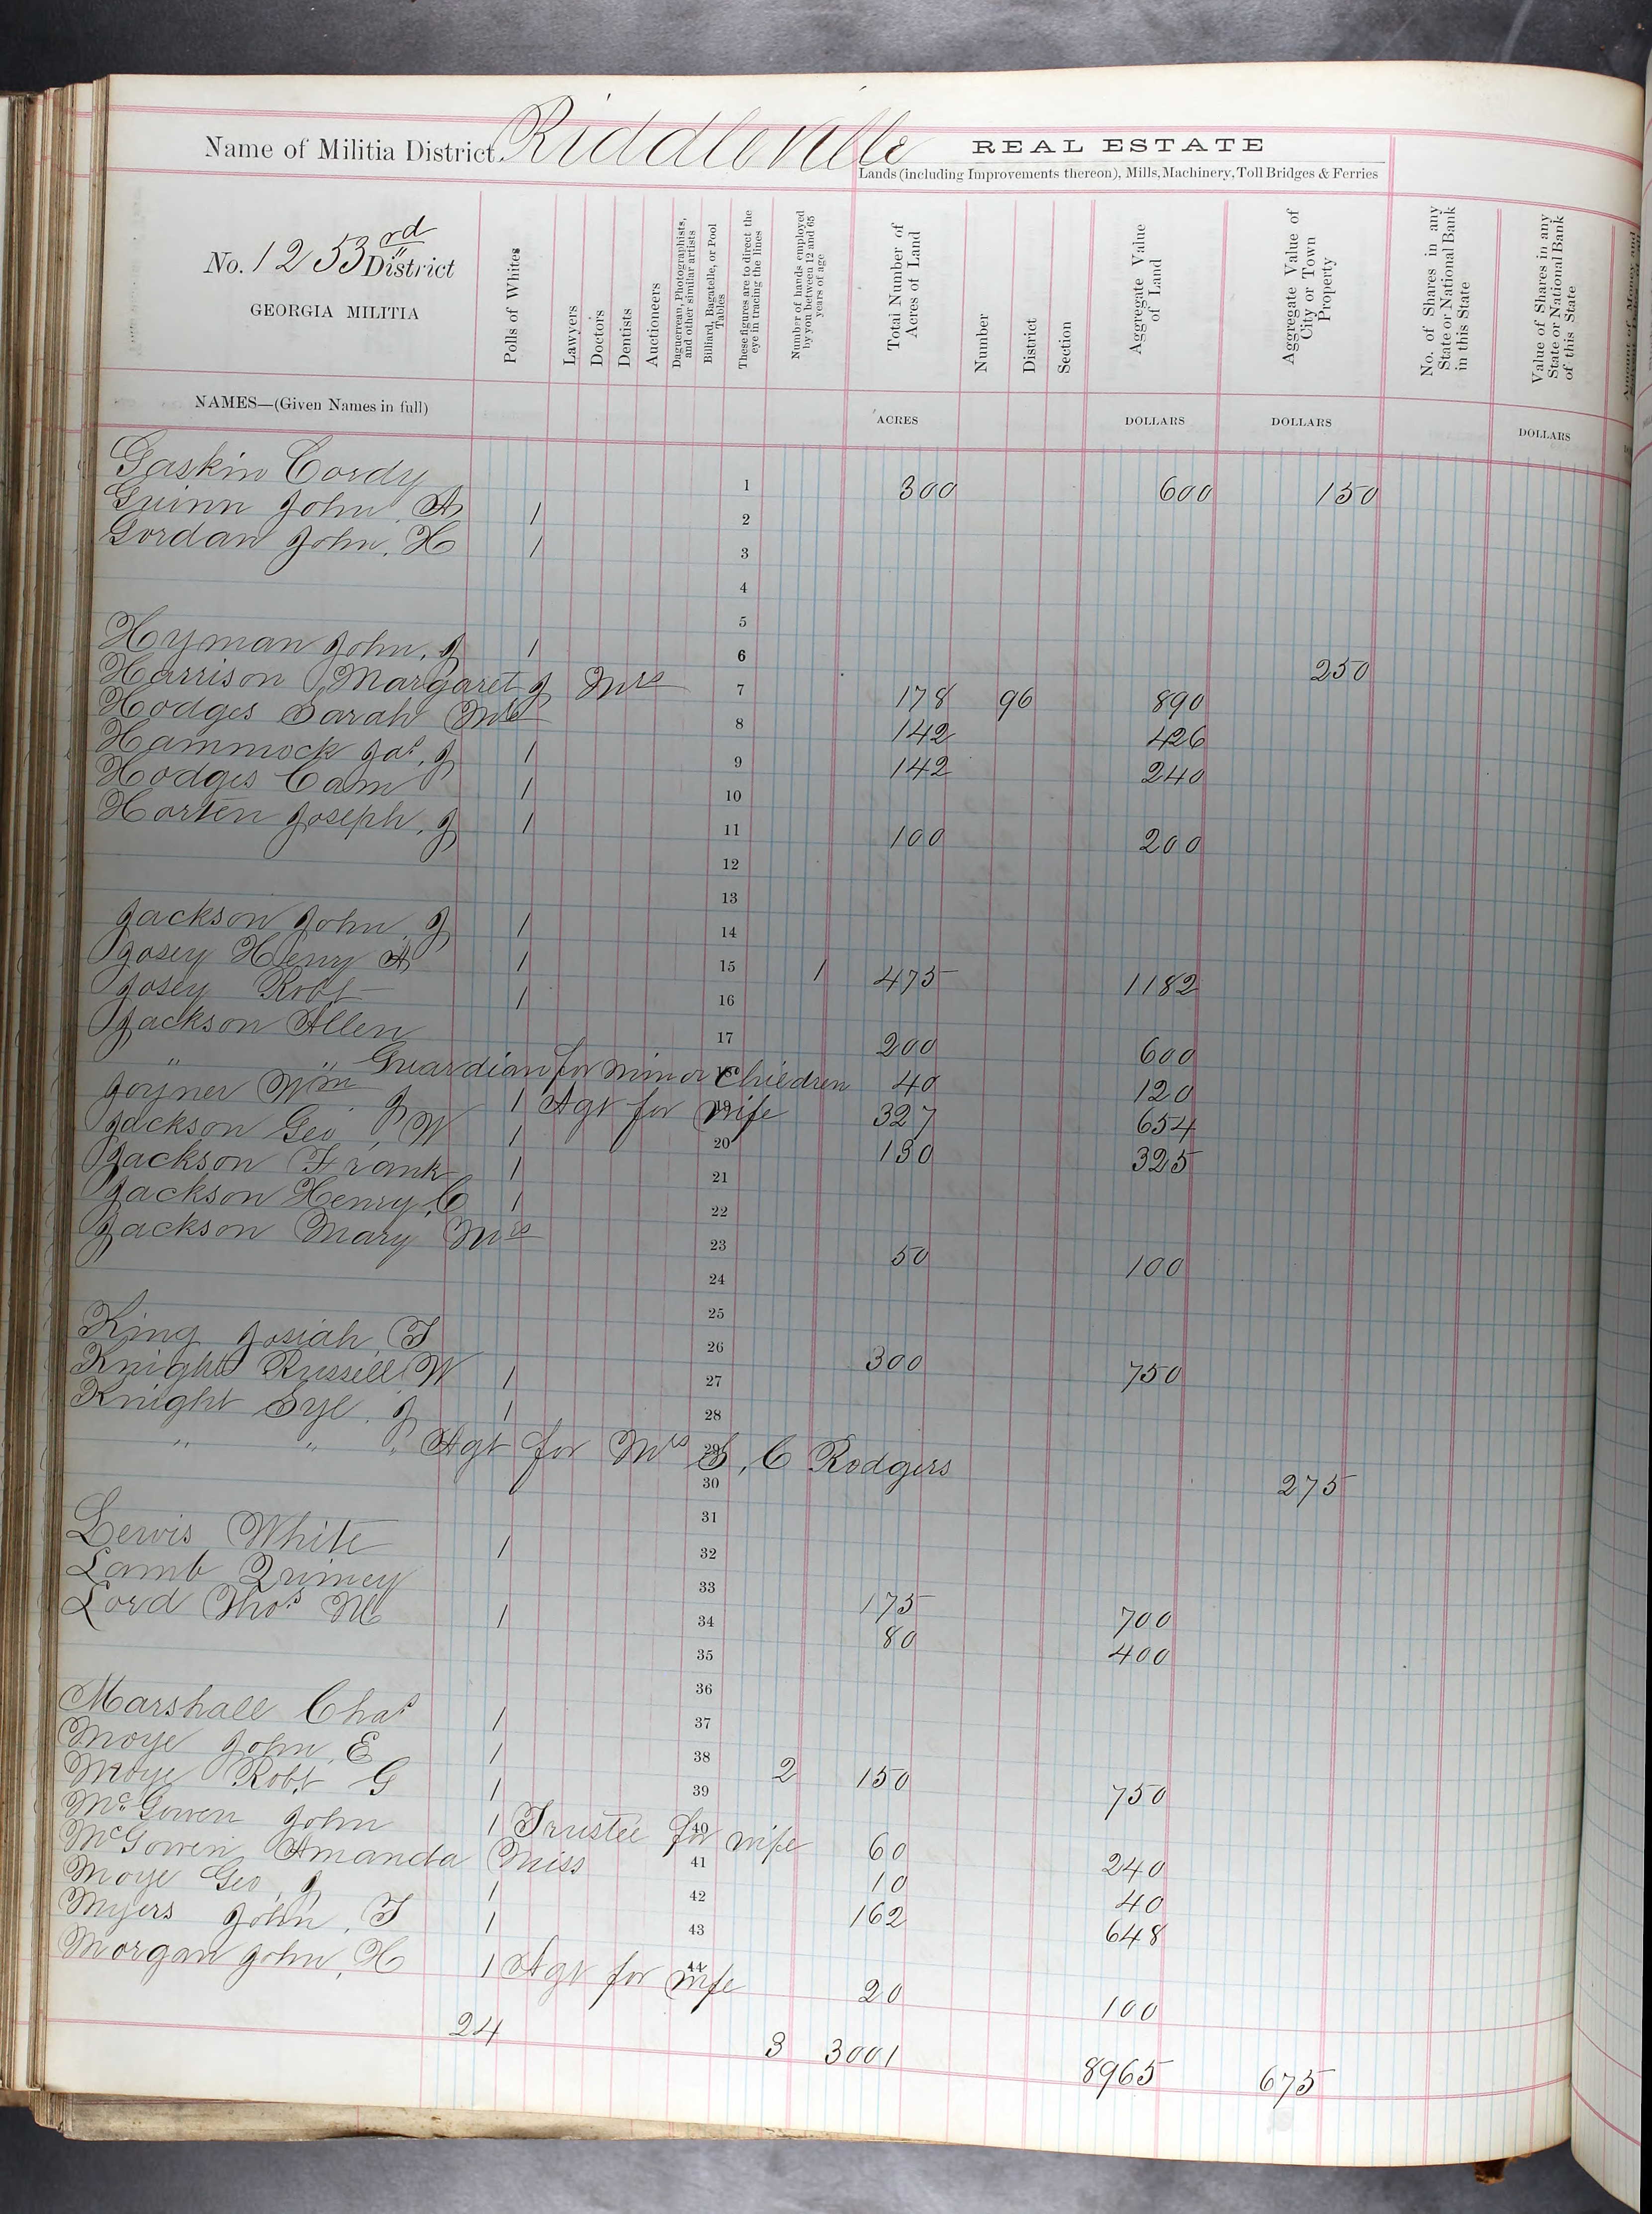 Name of Militia District. Riddleville REAL ESTATE
Lands (including Improvements thereon), Mills, Machinery, Toll Bridges & Ferries
No. 1253rd District
GEORGIA MILITIA
NAMES—(Given Names in full)
Polls of Whites
Lawyers
Doctors
Dentists
Auctioneers
Daguerrean, Photographists, and other similar artists
Billiard, Bagatelle, or Pool Tables
These figures are to direct the eye in tracing the lines
Number of hands employed by you between 12 and 65 years of age
Total Number of Acres of Land
ACRES
Number
District
Section
Aggregate Value of Land
DOLLARS
Aggregate Value of City or Town Property
DOLLARS
No. of Shares in any State or National Bank in this State
Value of Shares in any State or National Bank of this State
DOLLARS
Gaskin Cordy 1 300 600 150
Guinn John, A 1 2
Gordan John, H 1 3
4
5
Hyman John, J 1 6 250
Harrison Margaret J Mrs 7 178 96 890
Hodges Sarah Mrs 8 142 426
Hammock Jas, J 1 9 142 240
Hodges Cam 1 10
Horten Joseph, J 1 11 100 200
12
13
Jackson John, J 1 14
Josey Henry A 1 15 1 475 1182
Josey Robt 1 16
Jackson Allen 17 200 600
" " Guardian for minor Children 18 40 120
Joyner Wm J 1 Agt for wife 19 327 654
Jackson Geo, W 1 20 130 325
Jackson Frank 1 21
Jackson Henry, C 1 22
Jackson Mary Mrs 23 50 100
24
25
King Josiah, T 26 300 750
Knight Russell W 1 27
Knight Syl, J 1 28
" " " Agt for Mrs S, C Rodgers 29 275
30
31
Lewis White 1 32
Lamb Quincy 33 175 700
Lord Thos M 1 34 80 400
35
36
Marshall Chas 1 37
Moye John, E 1 38 2 150 750
Moye Robt G 1 39
McGowen John 1 Trustee for wife 40 60 240
McGowen Amanda Miss 41 10 40
Moye Geo, J 1 42 162 648
Myers John, T 1 43
Morgan John, H 1 Agt for wife 44 20 100
24 3 3001 8965 675